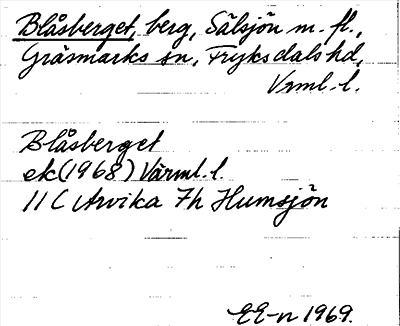 Blåsberget, berg, Sälsjön m. fl.,
Gräsmarks sn, Fryksdals hd,
Vrml. l.
Blåsberget
ek (1968) Värml. l.
11 C Arvika 7h Humsjön
EE-n 1969.